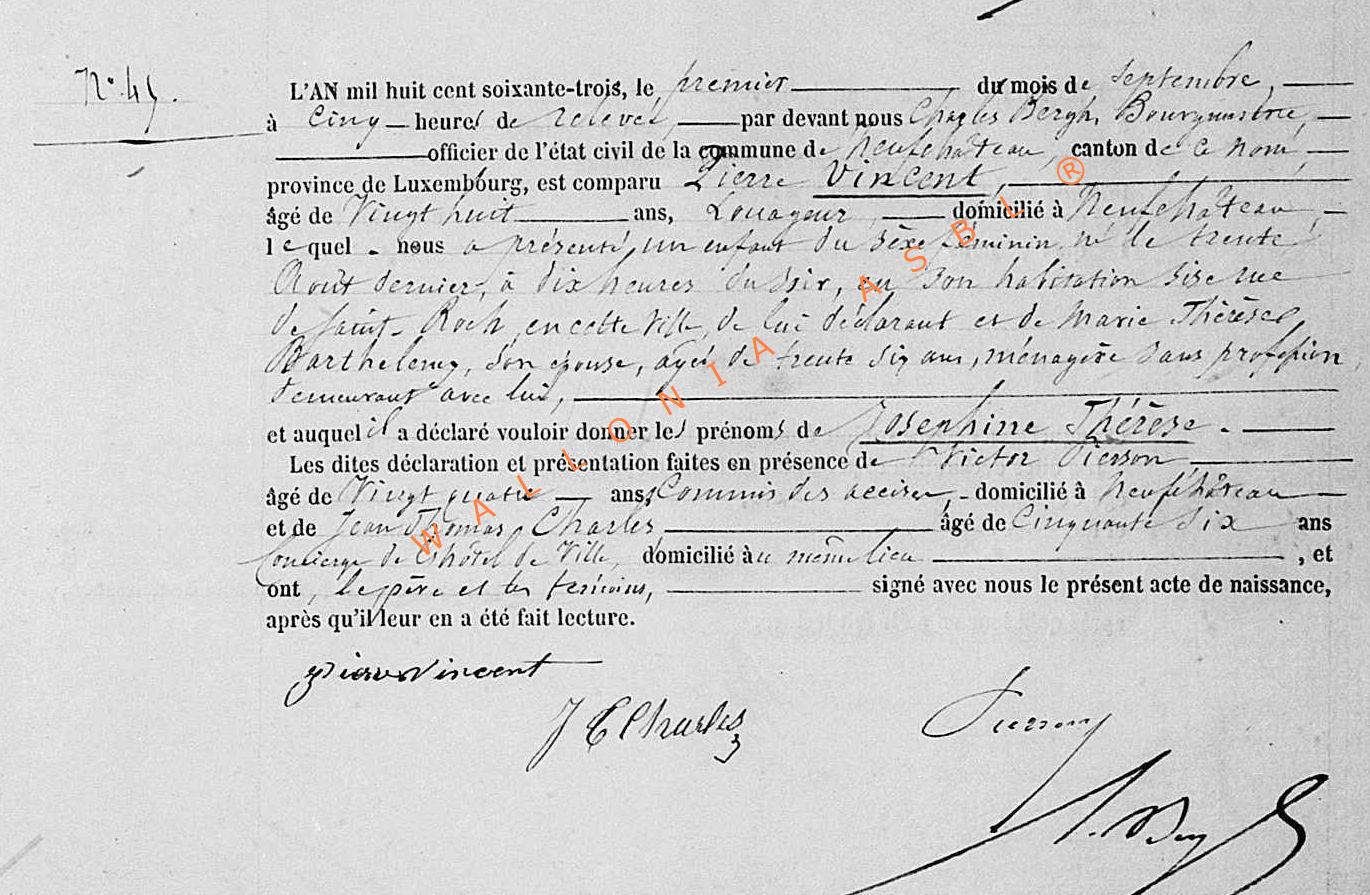 N° 45.
L'AN mil huit cent soixante-trois, le premier du mois de Septembre,
à Cinq heures de relevée, par devant nous Charles Bergh, Bourgmestre,
officier de l'état civil de la commune de Neufchâteau, canton de ce nom,
province de Luxembourg, est comparu Pierre Vincent,
âgé de Vingt huit ans, Louageur, domicilié à Neufchâteau,
lequel nous a présenté un enfant du sèxe féminin, né le trente
Août dernier, à dix heures du soir, en son habitation sise rue
de Saint-Roch, en cette Ville, de lui déclarant et de Marie Thérèse
Barthelemy, son épouse, agée de trente six ans, ménagère sans profession,
demeurant avec lui,
et auquel il a déclaré vouloir donner les prénoms de Josephine Thérèse.
Les dites déclaration et présentation faites en présence de Victor Pierson,
âgé de Vingt quatre ans, Commis des accises, domicilié à Neufchâteau
et de Jean Thomas Charles, âgé de Cinquante six ans
Concierge de l'hôtel de Ville, domicilié au même lieu, et
ont, le père et les témoins, signé avec nous le présent acte de naissance,
après qu'il leur en a été fait lecture.
Pierre Vincent
J T Charles
Pierson
WALLONIA ASBL ®